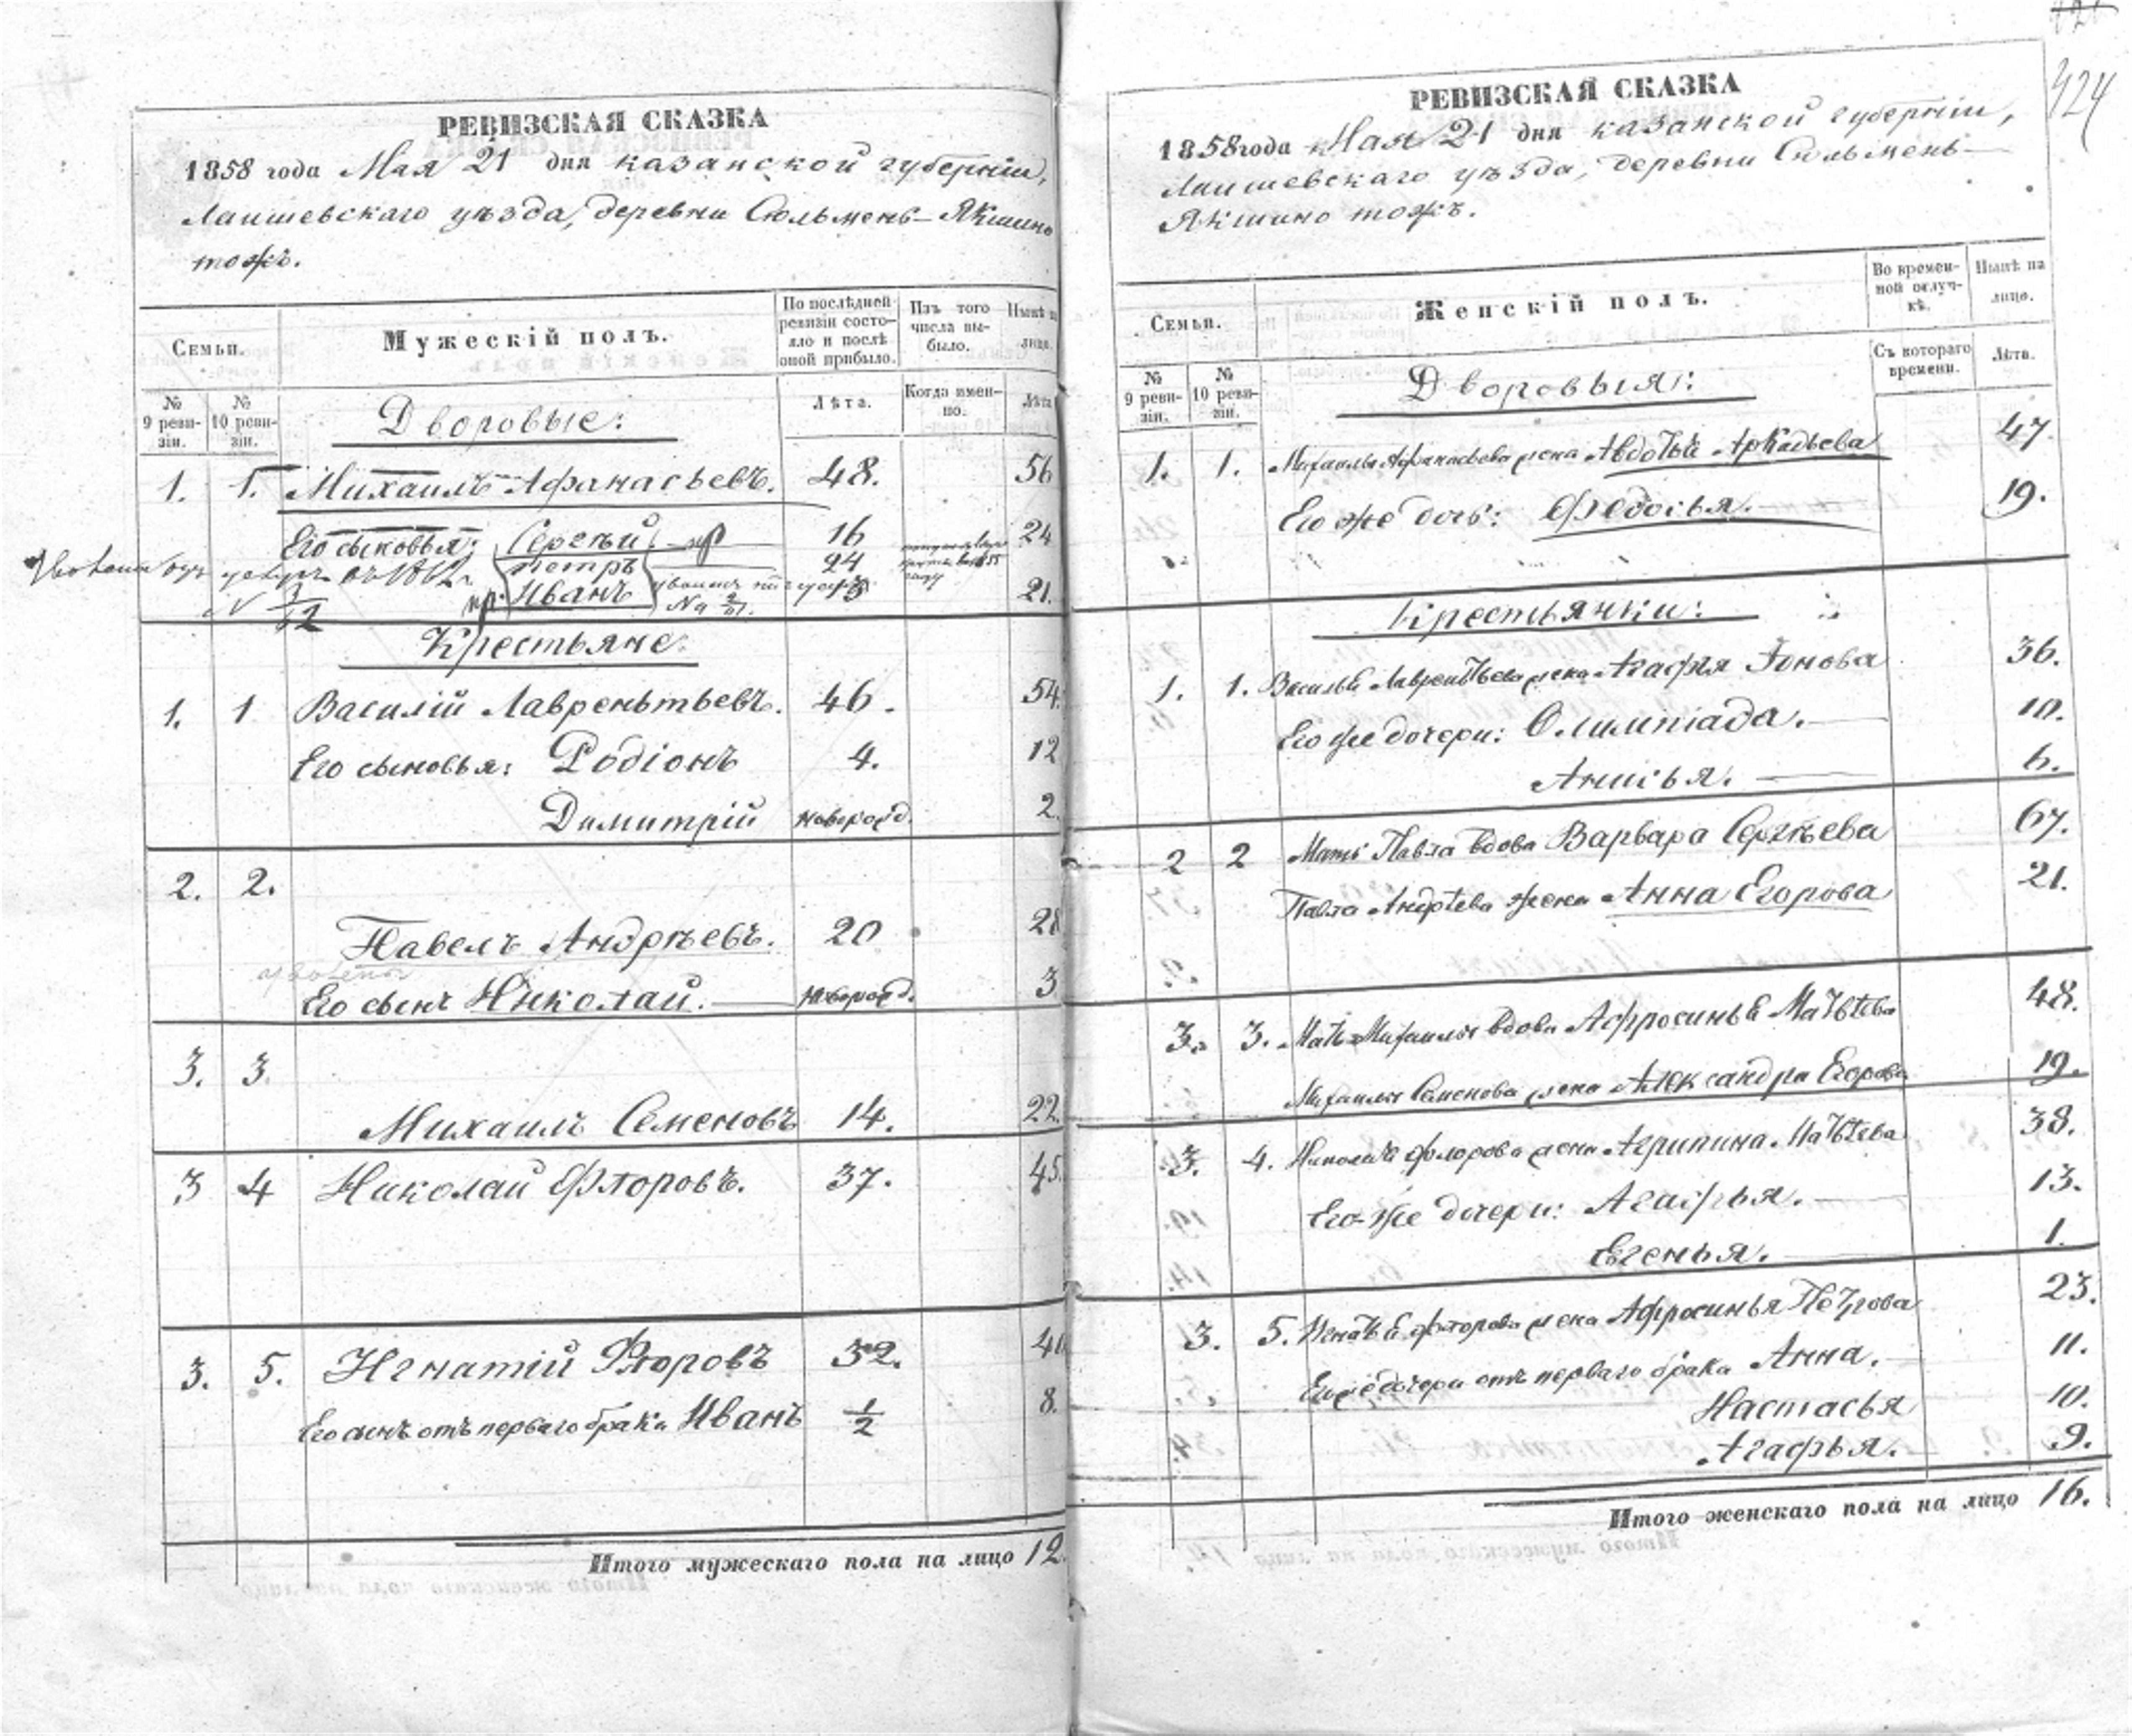 РЕВИЗСКАЯ СКАЗКА
1858 года Мая 21 дня казанской губерніи,
Лаишевскаго уѣзда, деревни Сюльмень-Якшино
тожъ.
Семьи.
Мужескій полъ.
По послѣдней ревизіи состояло и послѣ оной прибыло.
Изъ того числа выбыло.
Нынѣ на лицо.
№ 9 ревизіи.
№ 10 ревизіи.
Дворовые:
Лѣта.
Когда именно.
Лѣта
1. 1. Михаилъ Афанасьевъ. 48. 56
Его сыновья: Сергѣй 16 24
Петръ 24
Иванъ 13 21.
№
Крестьяне:
1. 1 Василій Лаврентьевъ. 46. 54.
Его сыновья: Родіонъ 4. 12
Димитрій новорожд. 2.
2. 2.
Павелъ Андрѣевъ. 20 28
Его сынъ Николай. новорожд. 3
3. 3.
Михаилъ Семеновъ 14. 22.
3 4 Николай Флоровъ. 37. 45.
3. 5. Игнатій Флоровъ 32. 40
Его сынъ отъ перваго брака Иванъ 1/2 8.
Итого мужескаго пола на лицо 12.
424
РЕВИЗСКАЯ СКАЗКА
1858 года Мая 21 дня казанской губерніи,
Лаишевскаго уѣзда, деревни Сюльмень-
Якшино тожъ.
Семьи.
Женскій полъ.
Во временной отлучкѣ.
Нынѣ на лицо.
№ 9 ревизіи.
№ 10 ревизіи.
Дворовыя:
Съ котораго времени.
Лѣта.
1. 1. Михаилы Афанасьева жена Авдотья Аркадьева 47.
Его же дочь: Федосья. 19.
Крестьянки:
1. 1. Василья Лаврентьева жена Агафья Іонова 36.
Его же дочери: Олимпіада. 10.
Анисья. 6.
2 2 Мать Павла вдова Варвара Сергѣева 67.
Павла Андрѣева жена Анна Егорова 21.
3. 3. Мать Михаилы вдова Афросинья Матвѣева 48.
Михаилы Семенова жена Александра Егорова 19.
3. 4. Николая Флорова жена Агрипина Матвѣева 38.
Его же дочери: Агафья. 13.
Евгенья. 1.
3. 5. Игнатья Флорова жена Афросинья Петрова 23.
Его же дочери отъ перваго брака Анна. 11.
Настасья 10.
Агафья. 9.
Итого женскаго пола на лицо 16.